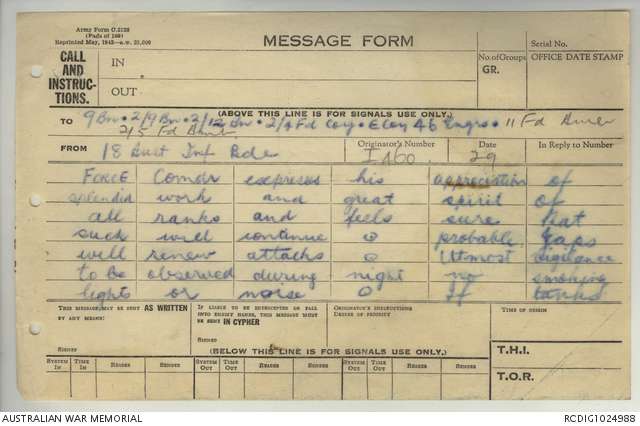 Army Form C.2128
(Pads of 100)
Reprinted May, 1942
MESSAGE FORM
Serial No.
CALL AND INSTRUCTIONS.
IN
OUT
No. of Groups
GR.
OFFICE DATE STAMP
(ABOVE THIS LINE IS FOR SIGNALS USE ONLY.)
TO 9 Bn • 2/9 Bn • 2/12 Bn • 2/4 Fd Coy • 46 Engrs • 11 Fd
2/5 Fd Amb
FROM 18 Aust Inf Bde
Originator's Number
I A60
Date
29
In Reply to Number
FORCE Comdr expresses his appreciation of
splendid work and great spirit of
all ranks and feels sure that
such will continue ⊙ probable Japs
will renew attacks ⊙ Utmost vigilance
to be observed during night no smoking
lights or noise ⊙ If tanks
THIS MESSAGE MAY BE SENT AS WRITTEN BY ANY MEANS
IF LIABLE TO BE INTERCEPTED OR FALL INTO ENEMY HANDS, THIS MESSAGE MUST BE SENT IN CYPHER
ORIGINATOR'S INSTRUCTIONS
DEGREE OF PRIORITY
TIME OF ORIGIN
SIGNED
SIGNED
(BELOW THIS LINE IS FOR SIGNALS USE ONLY.)
T.H.I.
SYSTEM IN
TIME IN
READER
SENDER
SYSTEM OUT
TIME OUT
READER
SENDER
SYSTEM OUT
TIME OUT
READER
SENDER
T.O.R.
AUSTRALIAN WAR MEMORIAL
RCDIG1024988